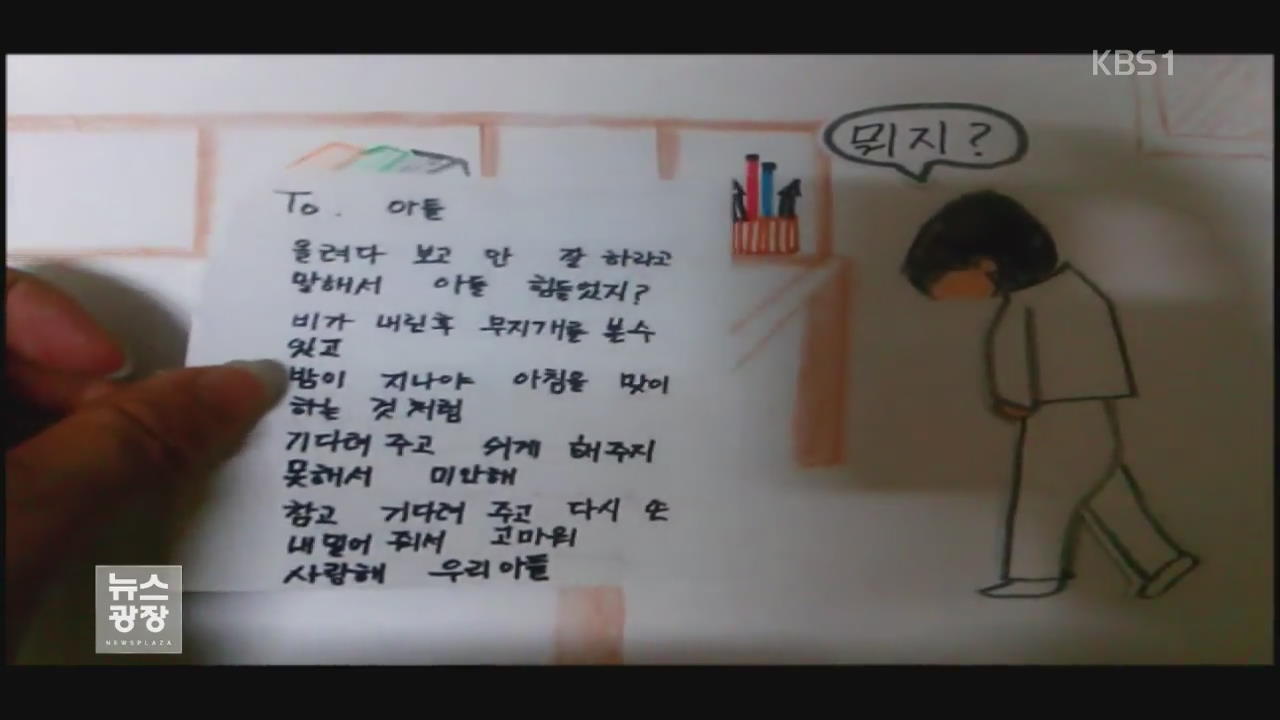 KBS1
뭐지?
To. 아들
올려다 보고 만 잘 하라고
말해서 아들 힘들었지?
비가 내린후 무지개를 볼수
있고
밤이 지나야 아침을 맞이
하는 것 처럼
기다려 주고 쉬게 해주지
못해서 미안해
참고 기다려 주고 다시 손
내밀어 줘서 고마워
사랑해 우리아들
뉴스
광장
NEWSPLAZA